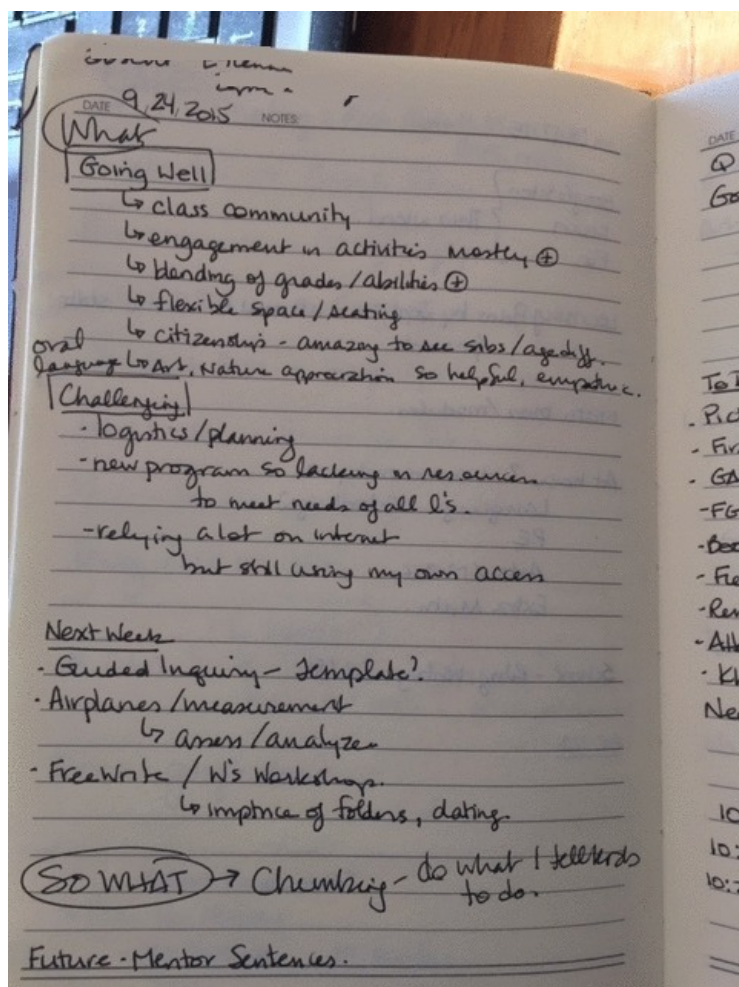 DATE 9,24,2015 NOTES:
What
Going Well
↳ class community
↳ engagement in activities mostly ⊕
↳ blending of grades/abilities ⊕
↳ flexible space/seating
↳ citizenship - amazing to see sibs/age diff.
oral language ↳ Art, Nature appreciation so helpful, empathic.
Challenging
- logistics/planning
- new program so lacking in resources
to meet needs of all l's.
- relying a lot on internet
but still using my own access
Next Week
· Guided Inquiry - Template?
· Airplanes/measurement
↳ assess/analyze
· FreeWrite / W's Workshop.
↳ imptnce of folders, dating.
SO WHAT → Chunking - do what I tell kids
to do.
Future - Mentor Sentences.
DATE
Q
Go
To
· Pic
- Fir
· GA
- FG
- Re
Ne
10
10:
10: